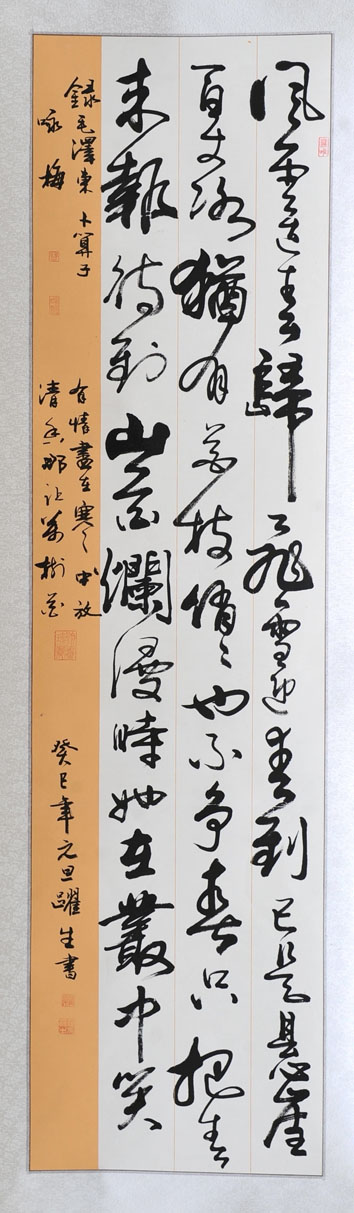 風雨送春歸飛雪迎春到已是懸崖
百丈冰猶有花枝俏〻也不争春只把春
来報待到山花爛漫時她在叢中笑
錄毛澤東卜算子
咏梅
有情盡在寒冬中放
清香那让萬樹花
癸巳年元旦躍生書